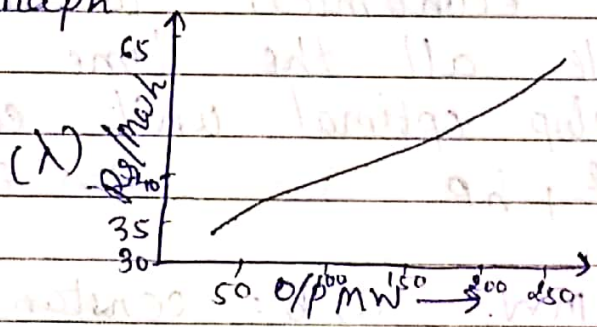 65
(λ)
Rs/Mwh
40
35
30
50 O/P 100 MW 150 200 250